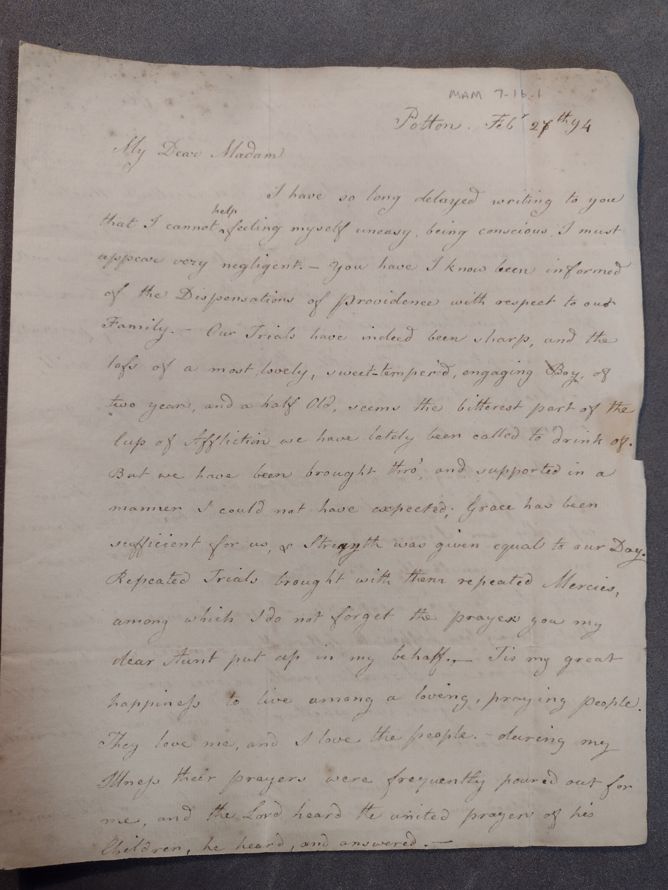 MAM 7.16.1
Potton. Febʳ 27ᵗʰ 94
My Dear Madam
I have so long delayed writing to you
help
that I cannot ^ feeling myself uneasy, being conscious I must
appear very negligent. — You have I know been informed
of the Dispensations of Providence with respect to our
Family. — Our Trials have indeed been sharp, and the
loſs of a most lovely, sweet-temper'd, engaging Boy, of
two years, and a half Old, seems the bitterest part of the
Cup of Affliction we have lately been called to drink of.
But we have been brought thro', and supported in a
manner I could not have expected; Grace has been
sufficient for us, & Strength was given equal to our Day.
Repeated Trials brought with them repeated Mercies,
among which I do not forget the prayers you my
dear Aunt put up in my behalf. — Tis my great
happineſs to live among a loving, praying people.
They love me, and I love the people. — during my
Illneſs their prayers were frequently poured out for
me, and the Lord heard the united prayers of his
Children, he heard, and answered. —